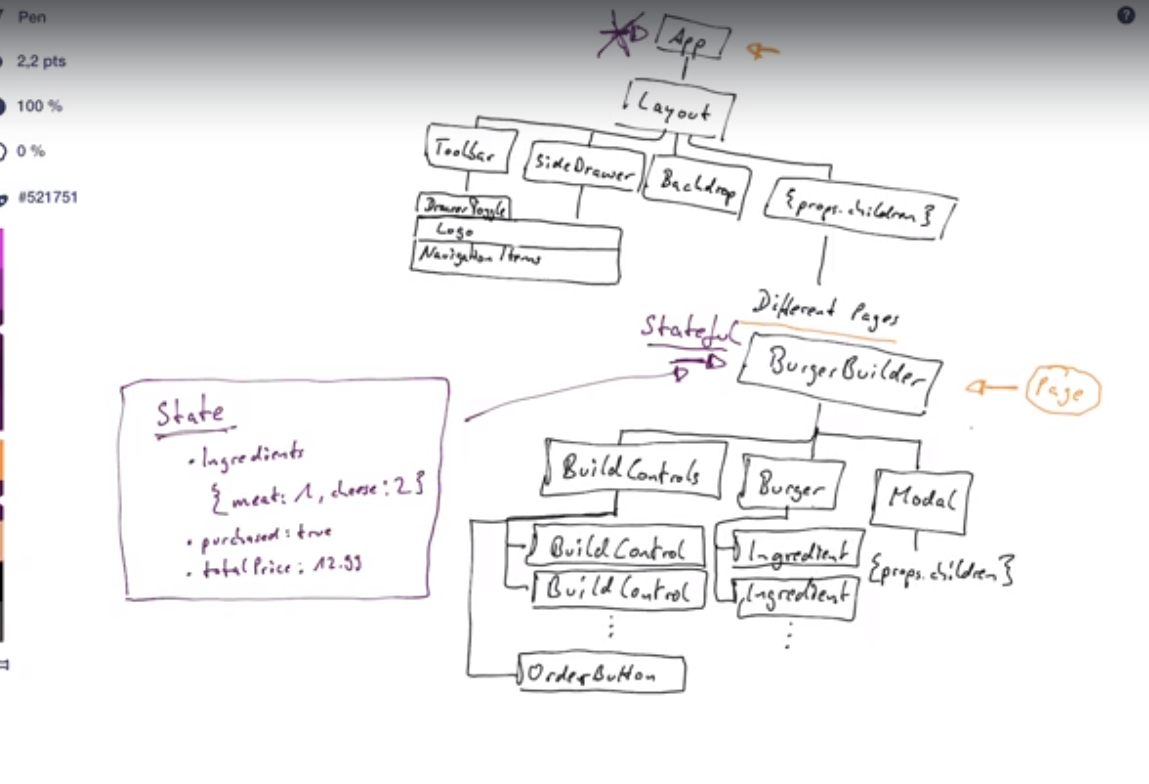 Pen
?
2,2 pts
100 %
0 %
#521751
App
Layout
Toolbar
SideDrawer
Backdrop
{props.children}
DrawerToggle
Logo
Navigation Items
Different Pages
Stateful
BurgerBuilder
Page
State
• Ingredients
{ meat: 1, cheese: 2 }
• purchased: true
• totalPrice: 12.99
Build Controls
Burger
Modal
Build Control
Ingredient
{props.children}
Build Control
Ingredient
OrderButton